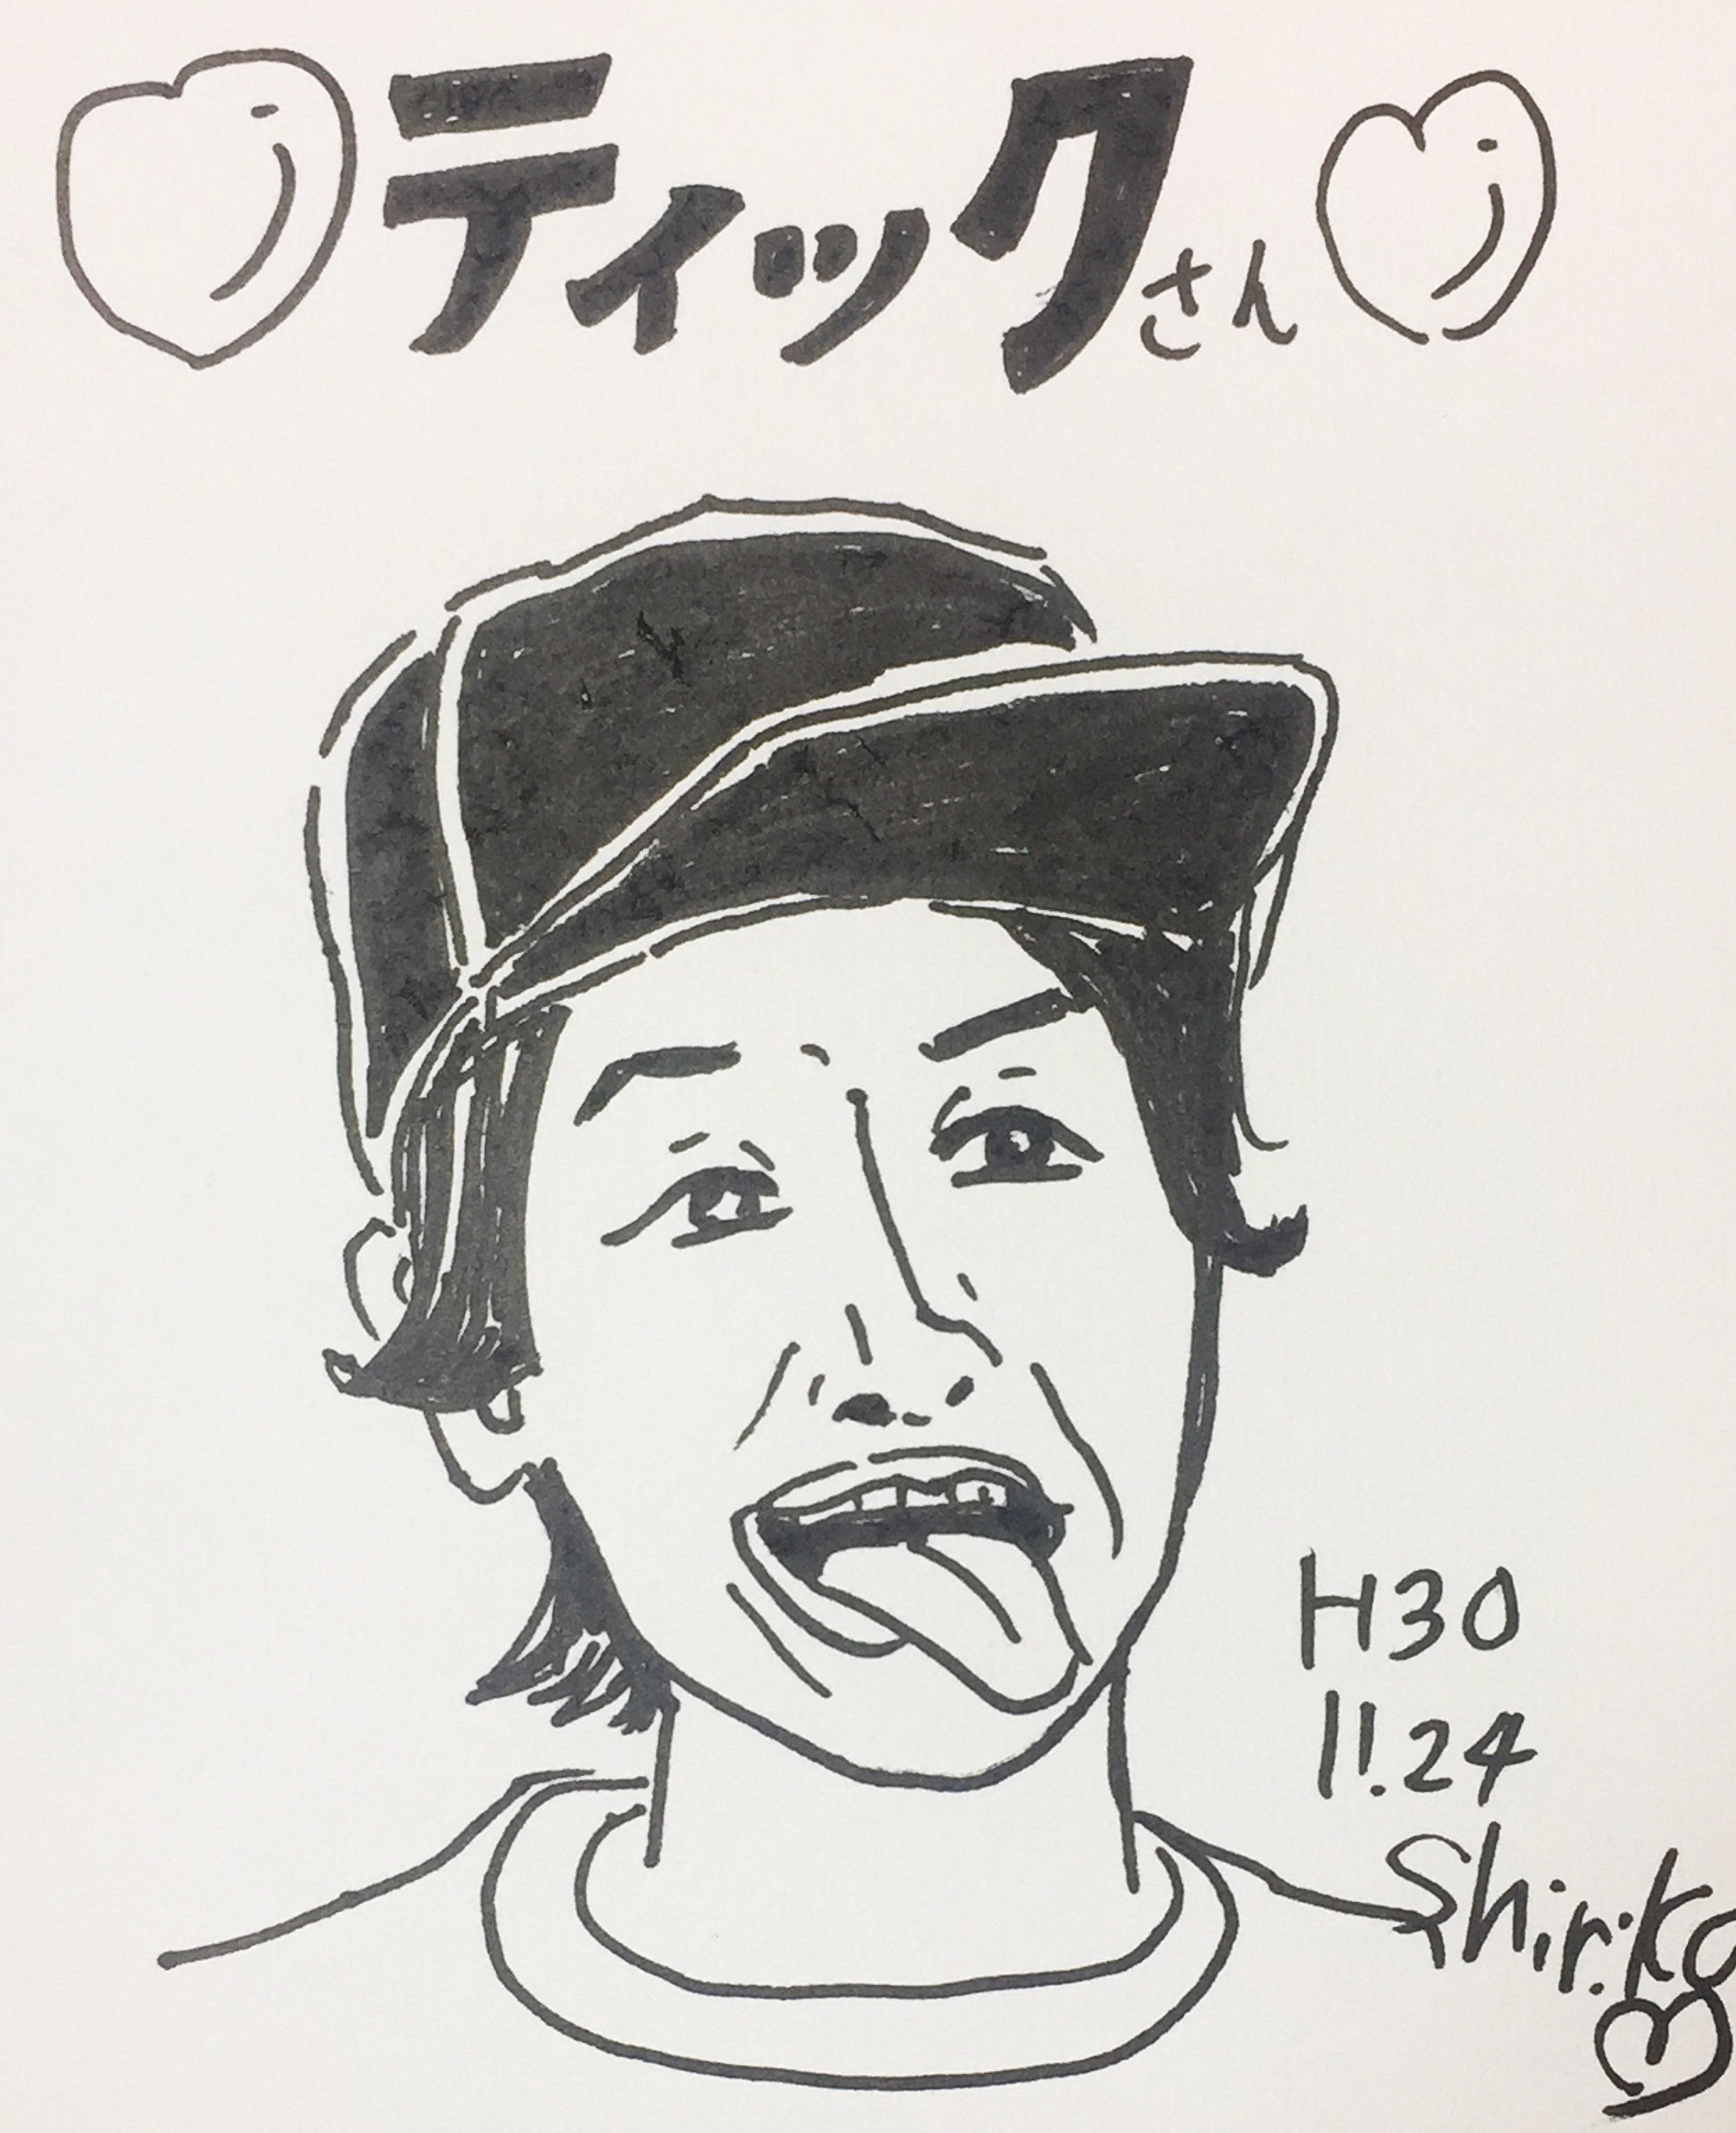 ティックさん
H30
11.24
Shiriko